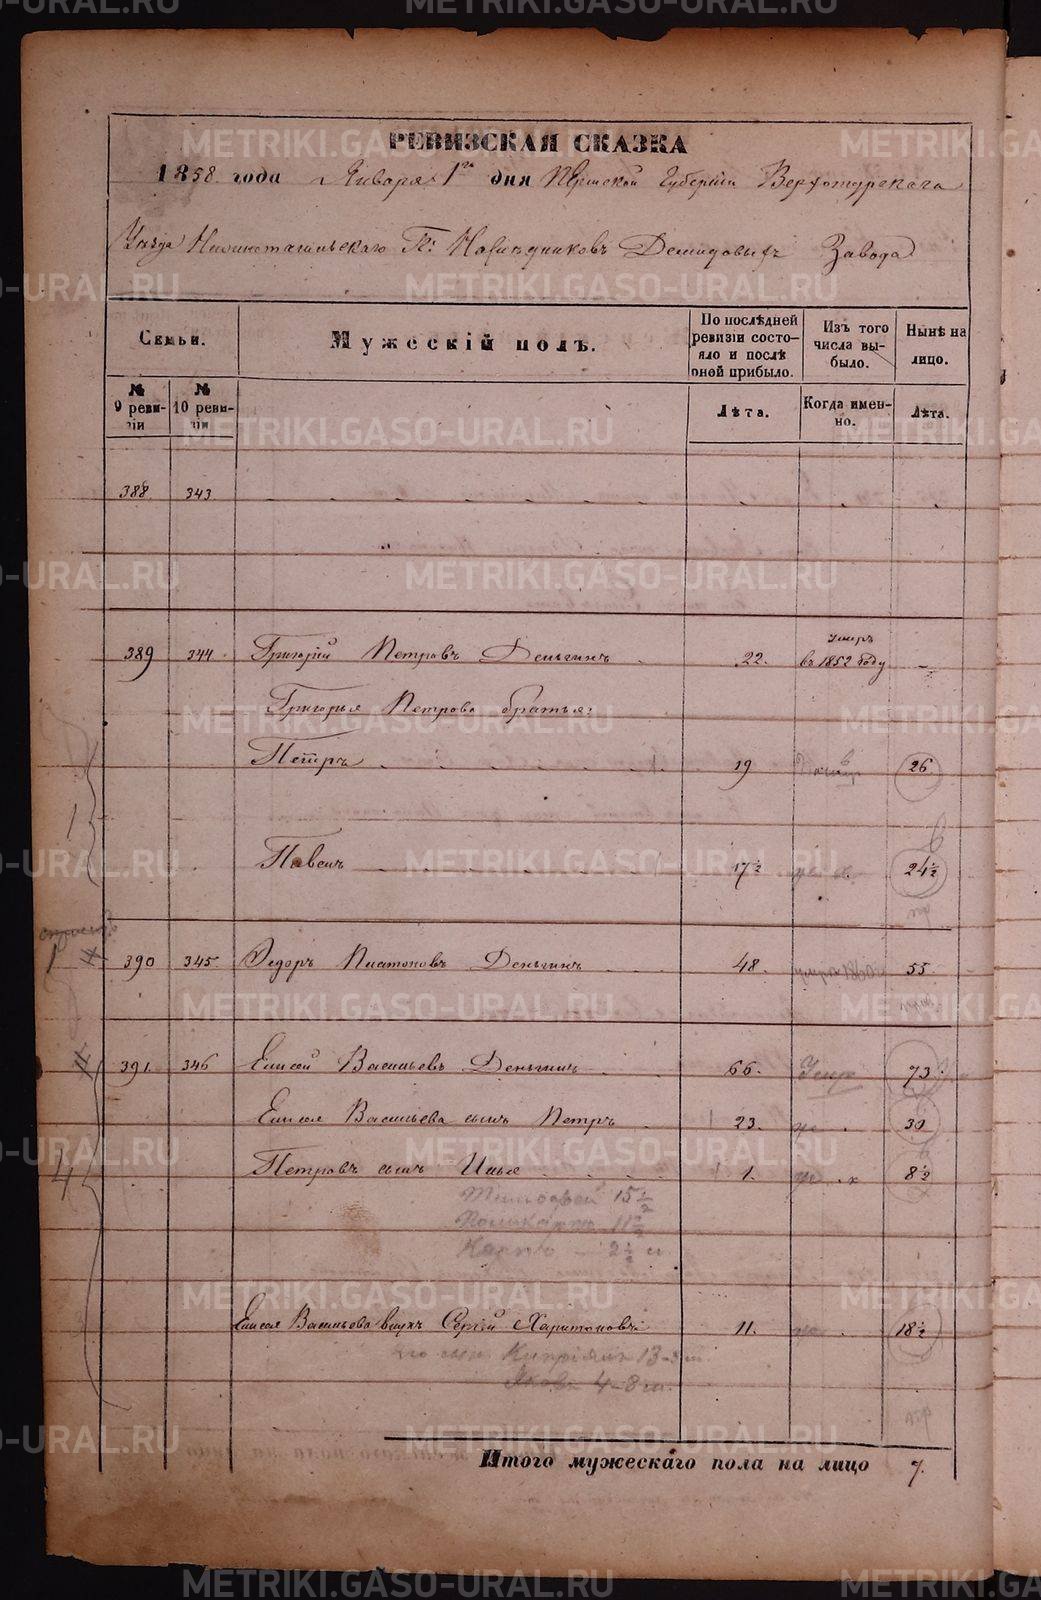 РЕВИЗСКАЯ СКАЗКА
1858 года Января 1го дня Пермской Губернiи Верхотурскаго
Уѣзда Нижнетагильскаго Гг. Наслѣдниковъ Демидовыхъ Завода
Семьи.
Мужескiй полъ.
По послѣдней ревизiи состояло и послѣ оной прибыло.
Изъ того числа выбыло.
Нынѣ на лицо.
№ 9 ревизiи
№ 10 ревизiи
Лѣта.
Когда именно.
Лѣта.
388 343
389 344 Григорiй Петровъ Деньгинъ 22. умеръ въ 1852 году
Григорья Петрова братья:
Петръ 19 26
1
Павелъ 17½ 24½
1 390 345 Федоръ Платоновъ Деньгинъ 48. 55
391 346 Елисей Васильевъ Деньгинъ 66. Умер 73
Елисея Васильева сынъ Петръ 23. 30
4 Петровъ сынъ Илья 1. 8½
Тимофей 15½
Поликарпъ 11½
Карпъ 2½
Елисея Васильева внукъ Сергѣй Харитоновъ 11. 18½
его сын. Кипрiянъ 13-3 м.
Яковъ 4-8 м.
Итого мужескаго пола на лицо 7.
METRIKI.GASO-URAL.RU